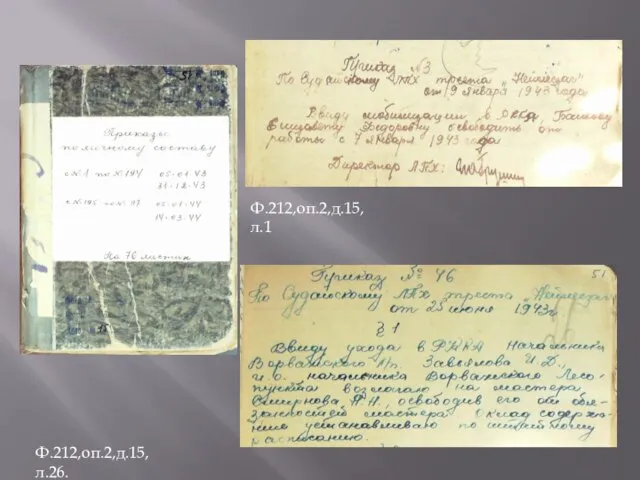 51
Приказы
по личному составу
с №1 по №194 05-01-43
31-12-43
с №195 по № 05-01-44
14-03-44
На 76 листах
35
Приказ №3
По Судайскому ЛПХ треста „
от 9 января 1943 года
Ввиду мобилизации в РККА,
Елизавету Федоровну освободить от
работы с 7 января 1943 года
Директор ЛПХ:
Ф.212,оп.2,д.15,
л.1
Приказ № 46 51
По Судайскому ЛПХ треста
от 25 июня 1943г
§ 1
Ввиду ухода в РККА Начальника
Ворважского л/п. Завьялова И. Д.,
и.о. начальника Ворважского Лесо-
пункта возлагаю на мастера
Смирнова, освободив его от обя-
занностей мастера. Оклад содержа-
ния устанавливаю по штатному
расписанию.
Ф.212,оп.2,д.15,
л.26.